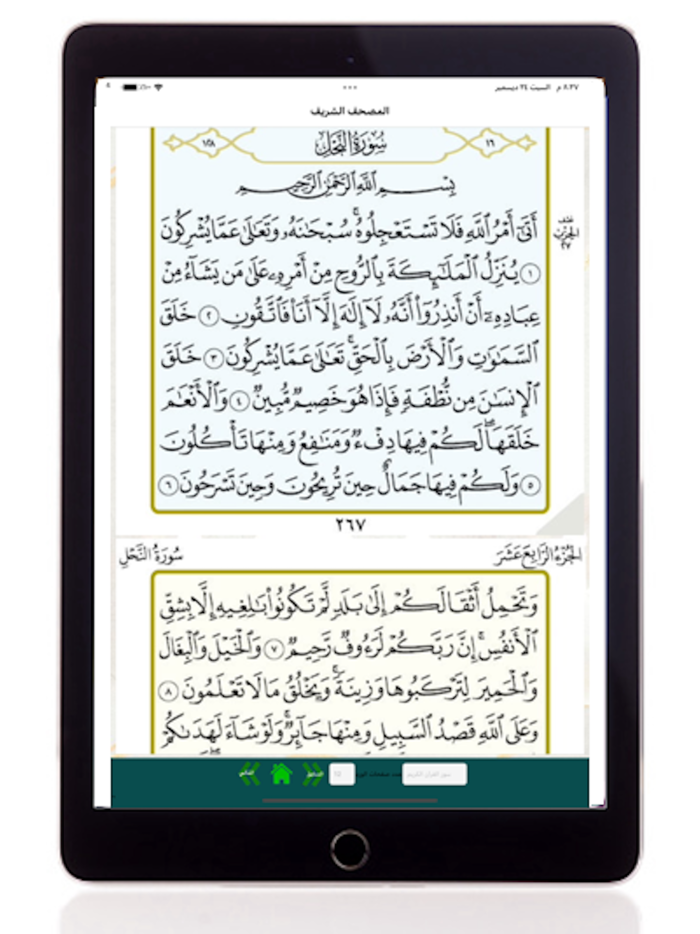 ٨:٢٧ م السبت ٢٤ ديسمبر
المصحف الشريف
١٦ سُورَةُ النَّحْلِ ١٢٨
بِسْمِ اللَّهِ الرَّحْمَٰنِ الرَّحِيمِ
أَتَىٰٓ أَمْرُ ٱللَّهِ فَلَا تَسْتَعْجِلُوهُۚ سُبْحَٰنَهُۥ وَتَعَٰلَىٰ عَمَّا يُشْرِكُونَ
١ يُنَزِّلُ ٱلْمَلَٰٓئِكَةَ بِٱلرُّوحِ مِنْ أَمْرِهِۦ عَلَىٰ مَن يَشَآءُ مِنْ
عِبَادِهِۦٓ أَنْ أَنذِرُوٓا۟ أَنَّهُۥ لَآ إِلَٰهَ إِلَّآ أَنَا۠ فَٱتَّقُونِ ٢ خَلَقَ
ٱلسَّمَٰوَٰتِ وَٱلْأَرْضَ بِٱلْحَقِّۚ تَعَٰلَىٰ عَمَّا يُشْرِكُونَ ٣ خَلَقَ
ٱلْإِنسَٰنَ مِن نُّطْفَةٍ فَإِذَا هُوَ خَصِيمٌ مُّبِينٌ ٤ وَٱلْأَنْعَٰمَ
خَلَقَهَاۗ لَكُمْ فِيهَا دِفْءٌ وَمَنَٰفِعُ وَمِنْهَا تَأْكُلُونَ
٥ وَلَكُمْ فِيهَا جَمَالٌ حِينَ تُرِيحُونَ وَحِينَ تَسْرَحُونَ ٦
نصف
الحزب
٢٧
٢٦٧
الجُزْءُ الرَّابِعَ عَشَرَ سُورَةُ النَّحْلِ
وَتَحْمِلُ أَثْقَالَكُمْ إِلَىٰ بَلَدٍ لَّمْ تَكُونُوا۟ بَٰلِغِيهِ إِلَّا بِشِقِّ
ٱلْأَنفُسِۚ إِنَّ رَبَّكُمْ لَرَءُوفٌ رَّحِيمٌ ٧ وَٱلْخَيْلَ وَٱلْبِغَالَ
وَٱلْحَمِيرَ لِتَرْكَبُوهَا وَزِينَةًۚ وَيَخْلُقُ مَا لَا تَعْلَمُونَ ٨
وَعَلَى ٱللَّهِ قَصْدُ ٱلسَّبِيلِ وَمِنْهَا جَآئِرٌۚ وَلَوْ شَآءَ لَهَدَىٰكُمْ
سور القرآن الكريم